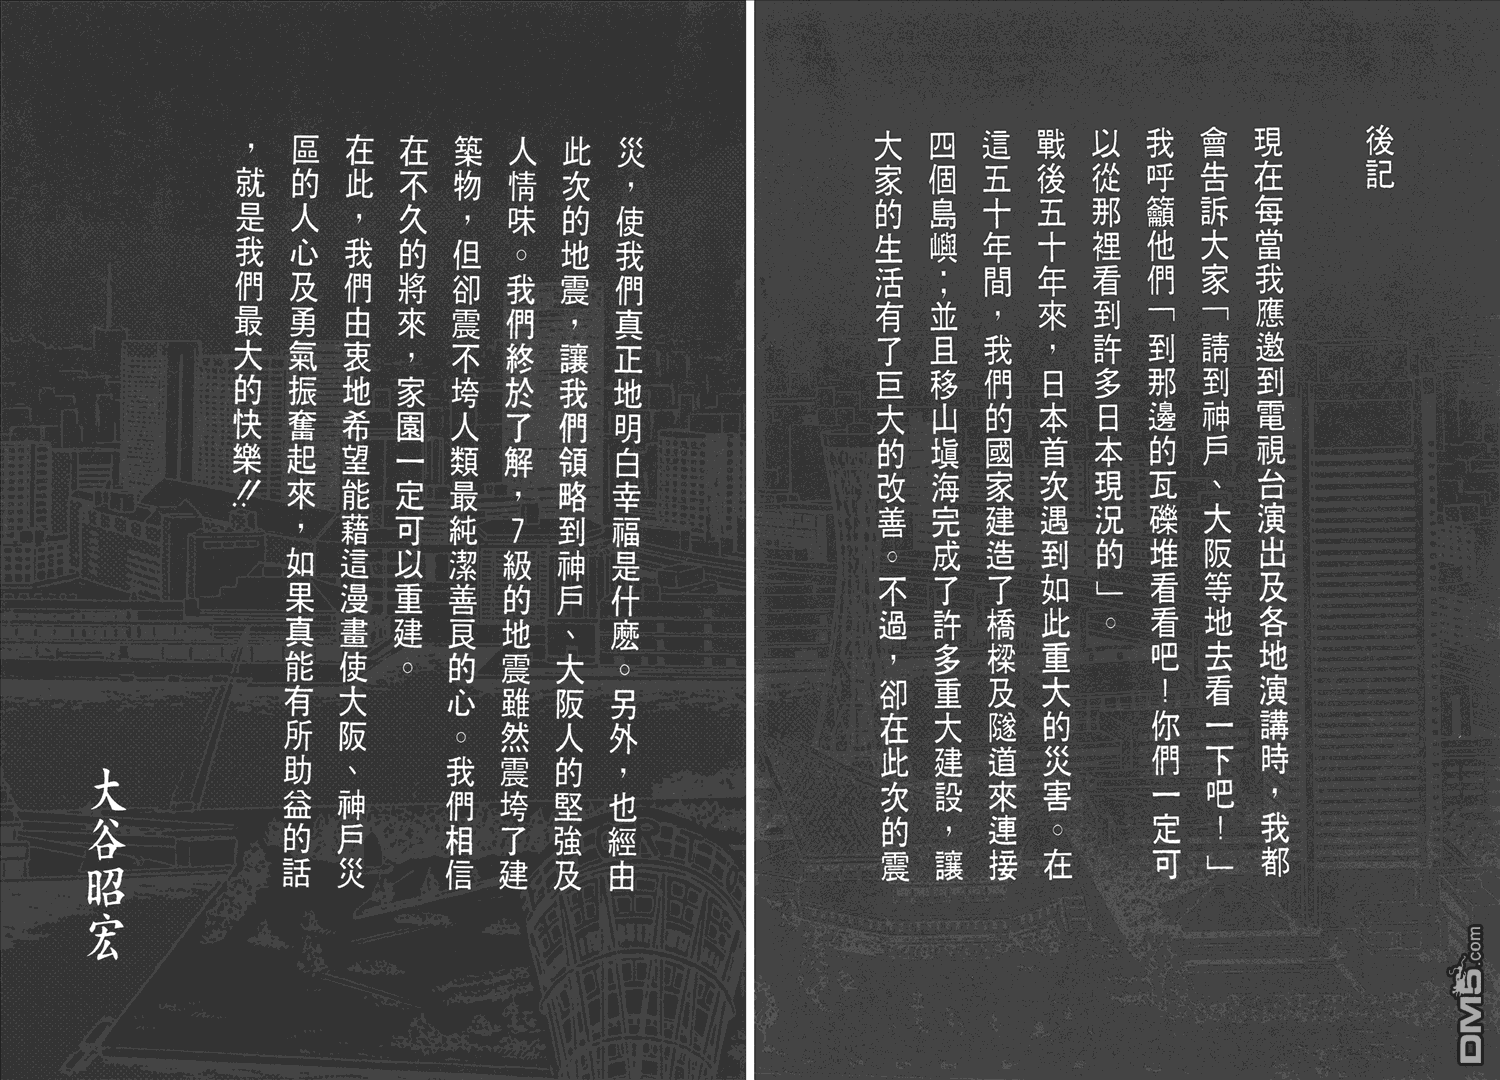 後記
現在每當我應邀到電視台演出及各地演講時，我都
會告訴大家「請到神戶、大阪等地去看一下吧！」
我呼籲他們「到那邊的瓦礫堆看看吧！你們一定可
以從那裡看到許多日本現況的」。
戰後五十年來，日本首次遇到如此重大的災害。在
這五十年間，我們的國家建造了橋樑及隧道來連接
四個島嶼；並且移山塡海完成了許多重大建設，讓
大家的生活有了巨大的改善。不過，卻在此次的震
災，使我們真正地明白幸福是什麼。另外，也經由
此次的地震，讓我們領略到神戶、大阪人的堅強及
人情味。我們終於了解，7級的地震雖然震垮了建
築物，但卻震不垮人類最純潔善良的心。我們相信
在不久的將來，家園一定可以重建。
在此，我們由衷地希望能藉這漫畫使大阪、神戶災
區的人心及勇氣振奮起來，如果真能有所助益的話
，就是我們最大的快樂!!
大谷昭宏
DM5.com